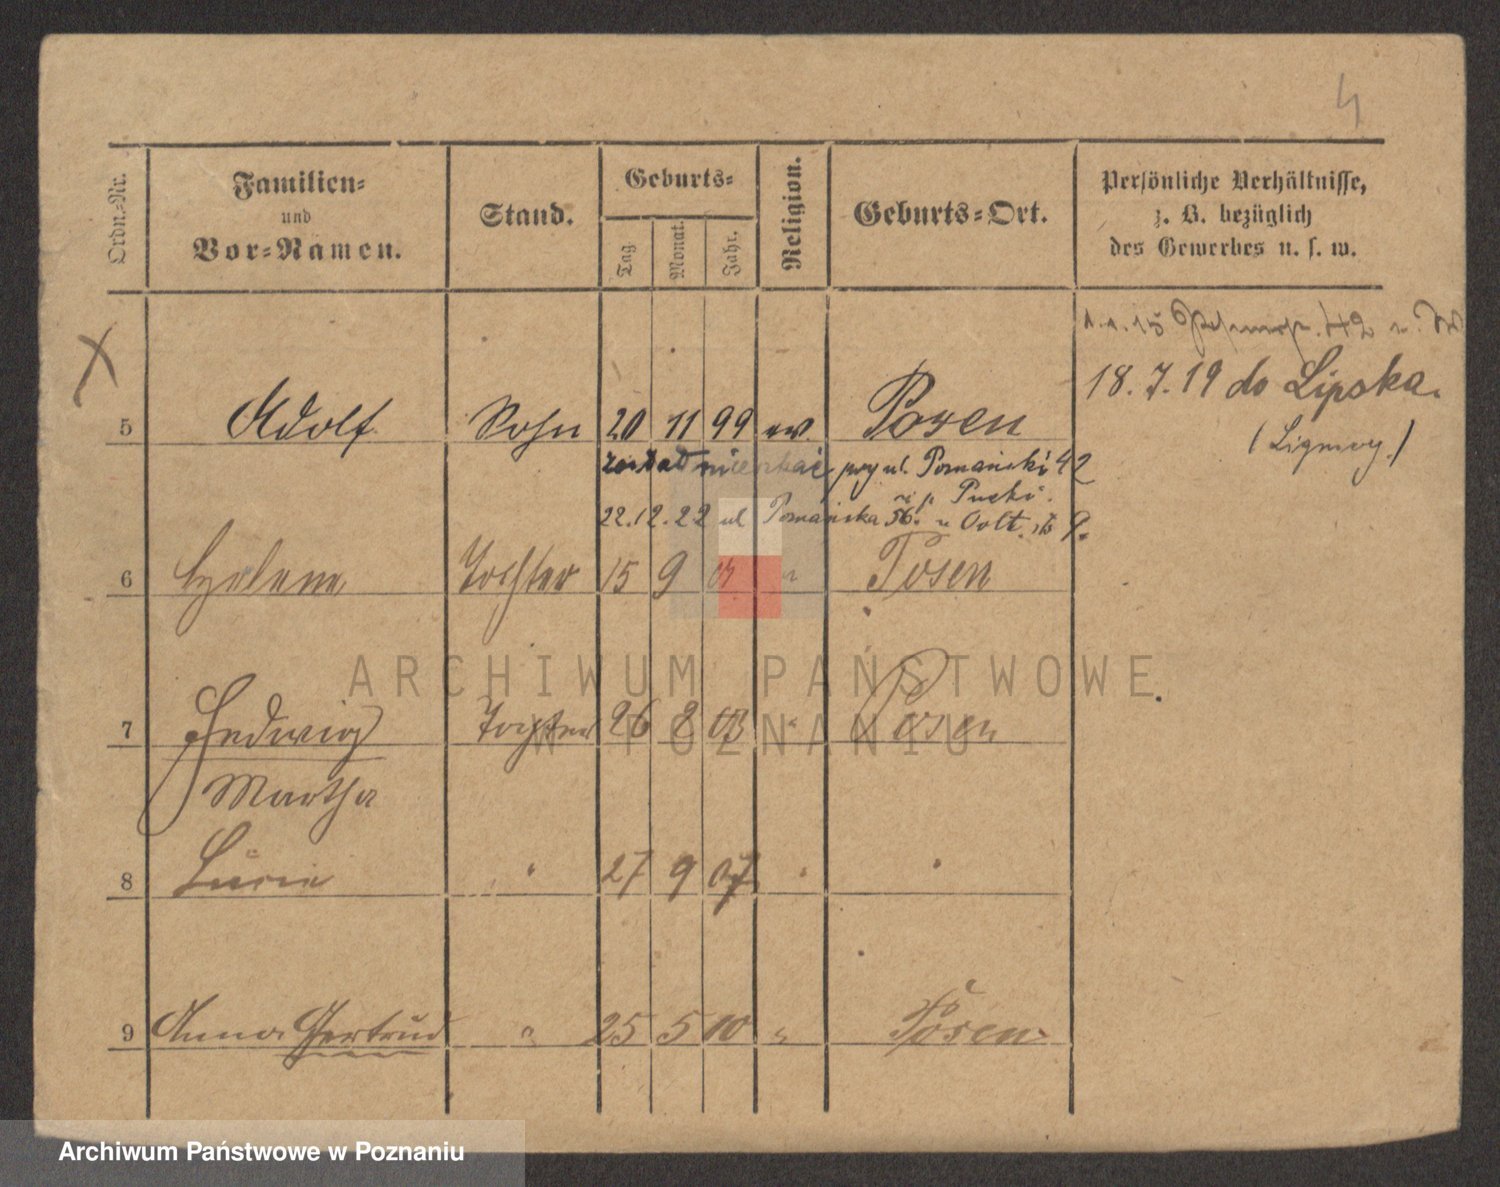 4
Ordn.-Nr.
Familien-
und
Vor-Namen.
Stand.
Geburts-
Tag.
Monat.
Jahr.
Religion.
Geburts-Ort.
Persönliche Verhältnisse,
z. B. bezüglich
des Gewerbes u. s. w.
1.1.15 42
18.7.19 do Lipska.
5 Adolf Sohn 20 11 99 ev. Posen
mieszkać przy ul. Poznański 42
Pucki.
22.12.22 ul Poznańska 56.
6 Helene Tochter 15 9 01 " Posen
7 Hedwig Tochter 26 8 03 " Posen
Martha
8 Lucie " 27 9 07 " "
9 Anna Gertrud " 25 5 10 " Posen
ARCHIWUM PAŃSTWOWE
W POZNANIU
Archiwum Państwowe w Poznaniu